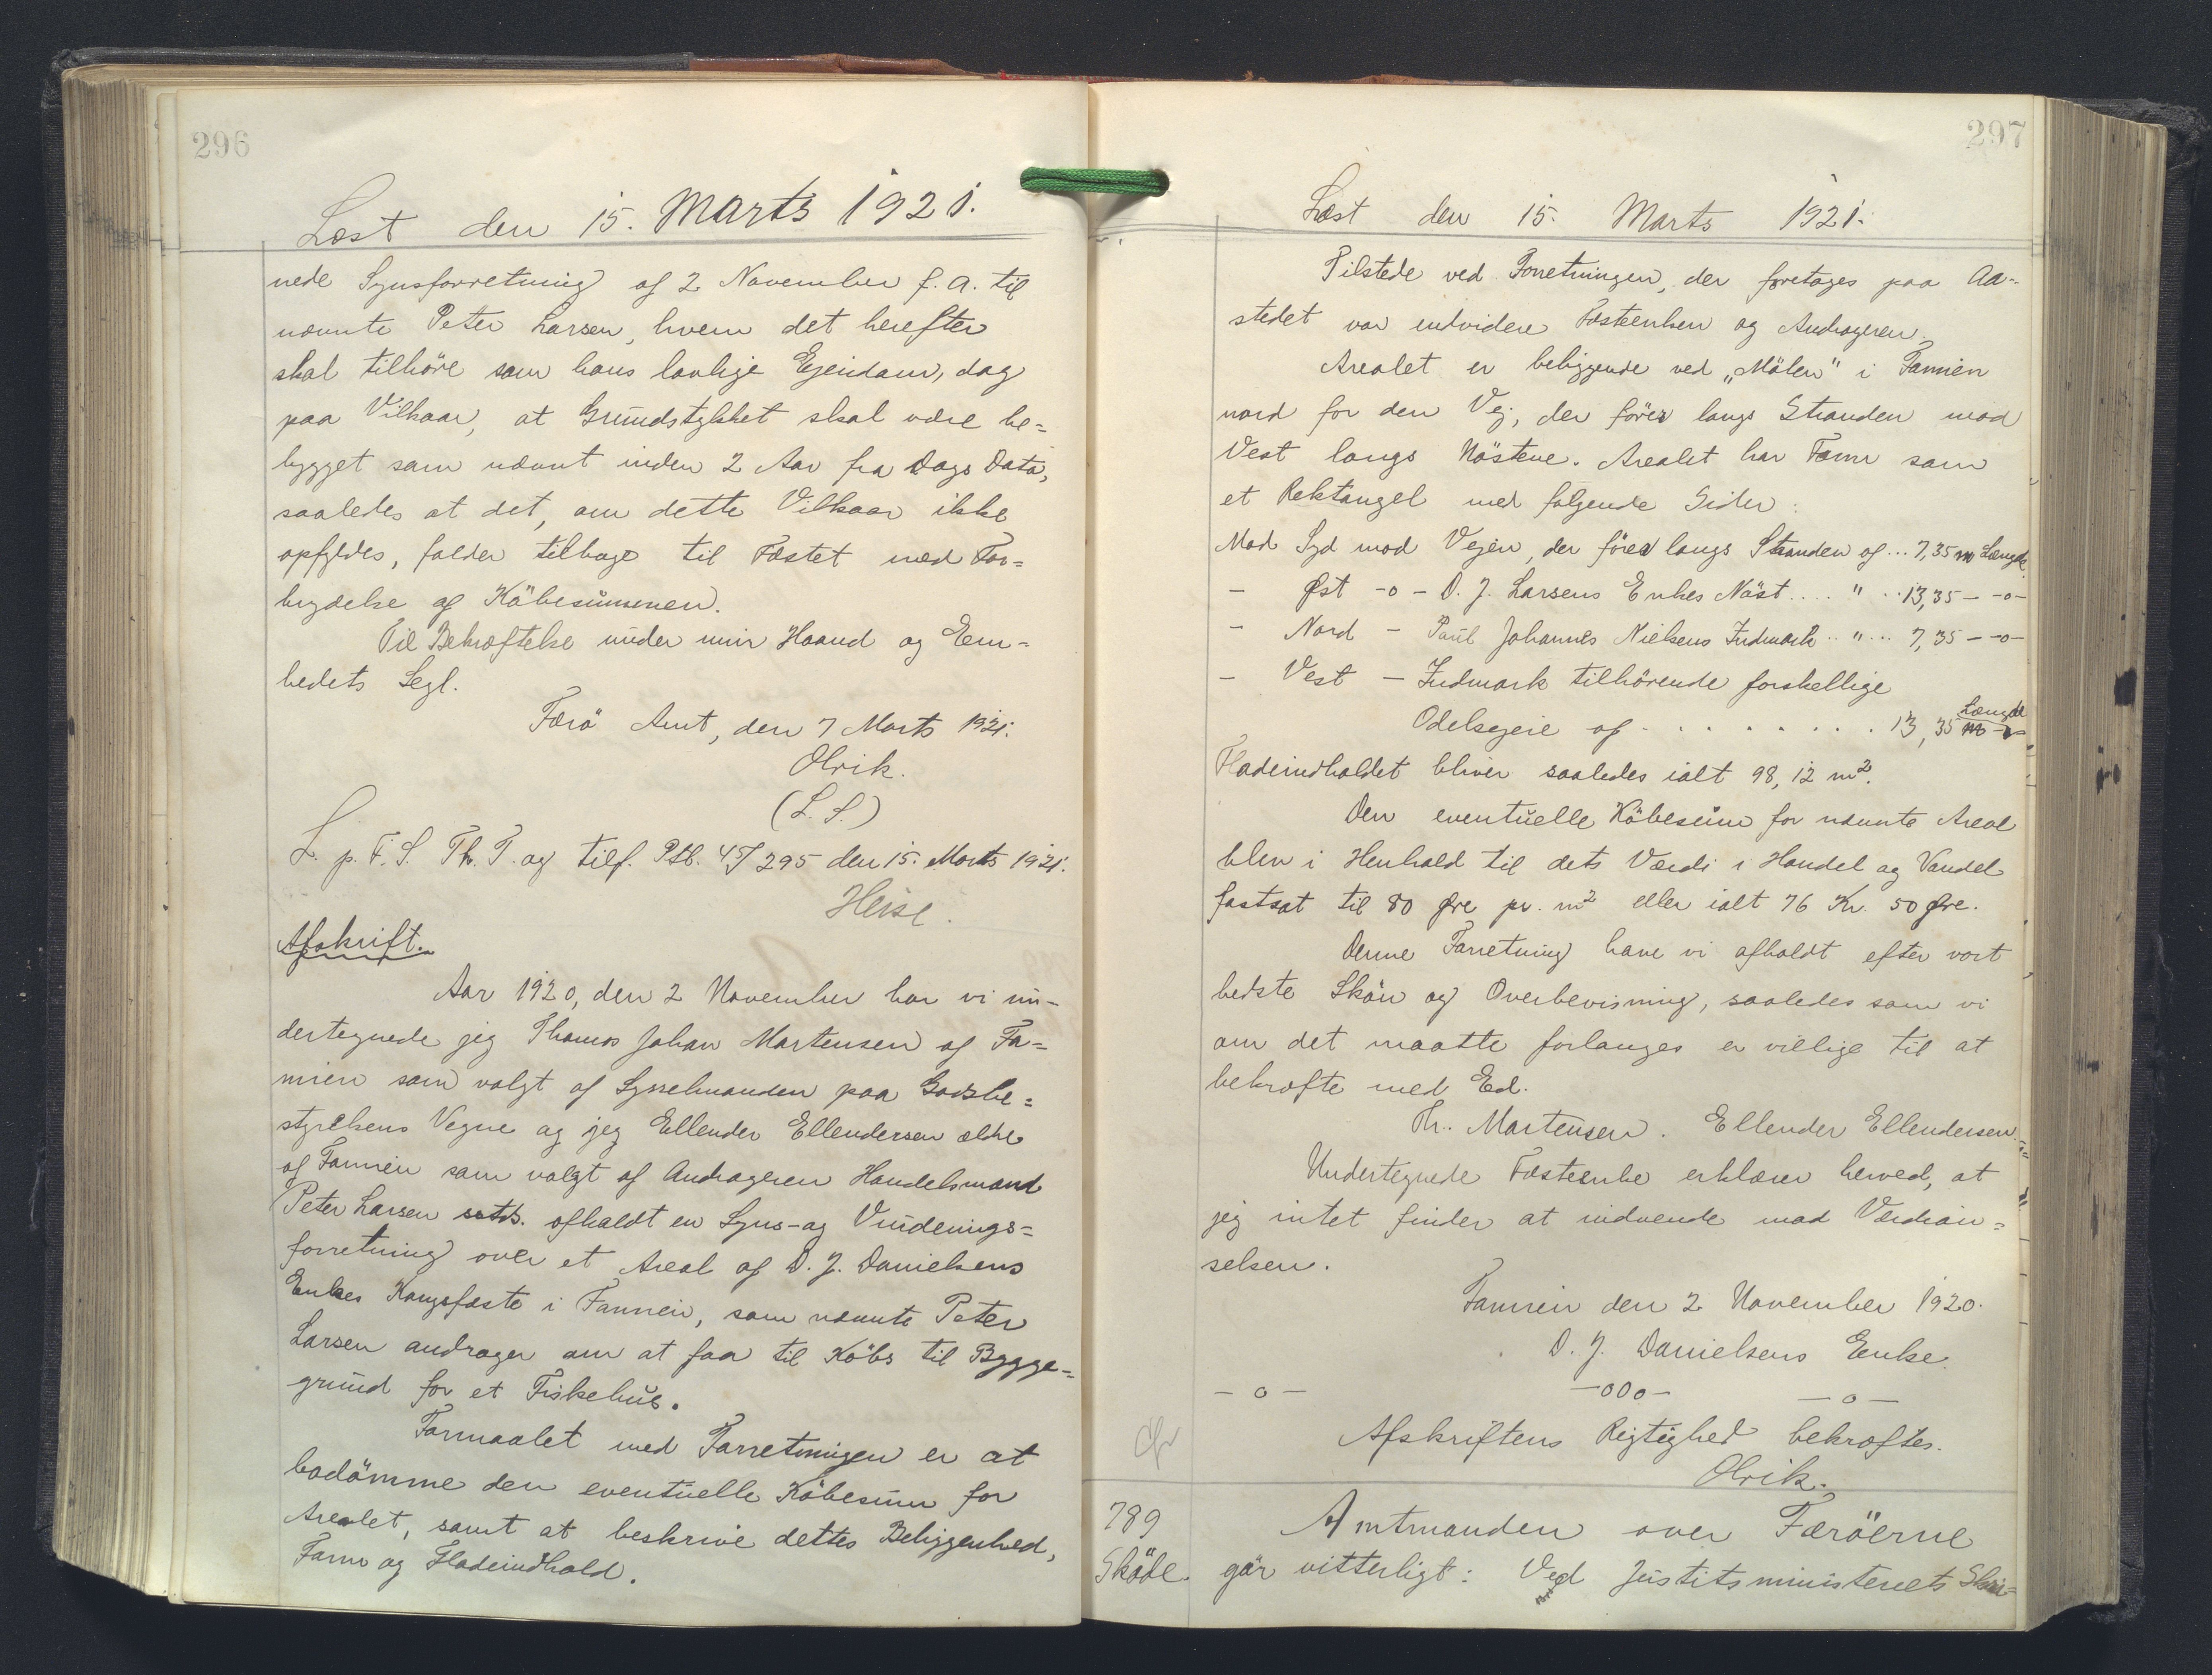 296
Læst den 15. Marts 1921.
nede Synsforretning af 2 November f. a. til
nævnte Peter Larsen, hvem det herefter
skal tilhöre som hans lovlige Ejendom, dog
paa Vilkaar, at Grundstykket skal være be=
bygget som nævnt inden 2 Aar fra Dags Dato,
saaledes at det, om dette Vilkaar ikke
opfyldes, falder tilbage til Fæstet med For=
brydelse af Köbesummen.
Til Bekræftelse under min Haand og Em=
bedets Segl.
Færö Amt, den 7 Marts 1921.
Olrik.
(L. S.)
L. p. F. S. Th. T. og tilf. Ptb. 45/295 den 15. Marts 1921.
Heise.
Afskrift.
Aar 1920, den 2 November har vi un-
dertegnede jeg Thomas Johan Martensen af Fa=
mien som valgt af Sysselmanden paa Godsbe=
styrelsens Vegne og jeg Ellender Ellendersen ældre
af Famien som valgt af Andrageren Handelsmand
Peter Larsen sstds. afholdt en Syns- og Vurderings=
forretning over et Areal af D. J. Danielsens
Enkes Kongsfæste i Famien, som nævnte Peter
Larsen andrager om at faa til Köbs til Bygge=
grund for et Fiskehus.
Formaalet med Forretningen er at
bedömme den eventuelle Köbesum for
Arealet, samt at beskrive dettes Beliggenhed,
Form og Fladeindhold.
297
Læst den 15. Marts 1921.
Tilstede ved Forretningen, der foretages paa Aa=
stedet var endvidere Fæsteenken og Andrageren.
Arealet er beliggende ved „Mölen" i Famien
nord for den Vej, der förer langs Stranden mod
Vest langs Nöstene. Arealet har Form som
et Rektangel med følgende Sider:
Mod Syd mod Vejen, der förer langs Stranden af ... 7,35 m Længde
- Øst -o- D. J. Larsens Enkes Nöst .... " .. 13,35 - -o-
- Nord - Poul Johannes Nielsens Indmark .. " ... 7,35 - -o-
- Vest - Indmark tilhörende forskellige
Odelsejere af . . . . . . . . 13,35 m Længde
Fladeindholdet bliver saaledes ialt 98,12 m².
Den eventuelle Köbesum for nævnte Areal
blev i Henhold til dets Værdi i Handel og Vandel
fastsat til 80 Øre pr. m² eller ialt 76 Kr. 50 Øre.
Denne Forretning have vi afholdt efter vort
bedste Skön og Overbevisning, saaledes som vi
om det maatte forlanges er villige til at
bekræfte med Ed.
Th. Martensen. Ellender Ellendersen.
Undertegnede Fæsteenke erklærer herved, at
jeg intet finder at indvende mod Værdian=
selsen.
Famien den 2 November 1920.
D. J. Danielsens Enke.
- o - -000- - o -
Afskriftens Rigtighed bekræftes.
Olrik.
789
Sköde.
Amtmanden over Færöerne
gör vitterligt: Ved Justitsministeriets Skri=